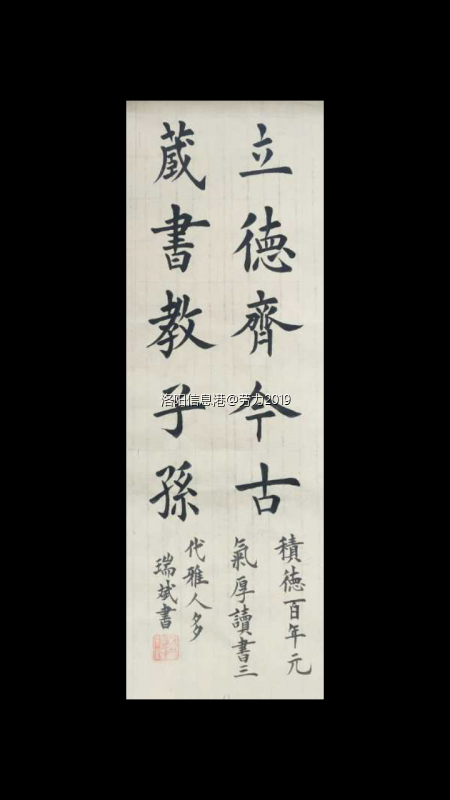 立德齊今古
蔵書教子孫
積徳百年元
氣厚讀書三
代雅人多
瑞斌書
洛阳信息港@劳力2019